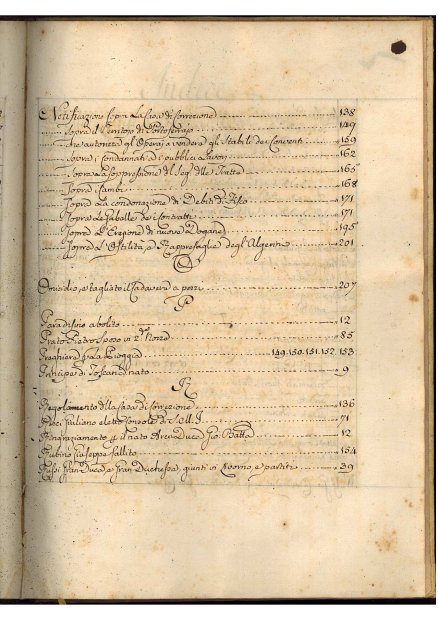 Notificazione sopra La Casa di Correzione 138
Sopra il Territorio di Portoferraio 149
che autorizza gl'Operaj a vendere gli Stabili de Conventi 159
Sopra i Condannati a i pubblici Lavori 162
Sopra La Soppressione di Seg. delle Tratte 165
Sopra Cambi 168
Sopra La condonazione di Debiti di Fisco 171
Sopra Le Gabelle de Contratti 171
Sopra L'Erezione di nuove Dogane 195
Sopra L'Ostilità, e Rappresaglie degl'Algerini 201
O
Omicidio, e tagliato il Cadavere a pezzi 207
P
Paradisino abolito 12
Prato Pietro Sposo in 2.de Nozze 85
Preghiera p. La Pioggia 149. 150. 151. 152. 153
Principe di Toscana nato 9
R
Regolamento della Casa di Correzione 136
Ricci Giuliano eletto Console di S.M.I. 71
Ringraziamento p. il nato Arciduca Gio. Batta 12
Rubino Giuseppe fallito 154
Russi Gran Duca e Gran Duchessa, giunti in Livorno, e partiti 39